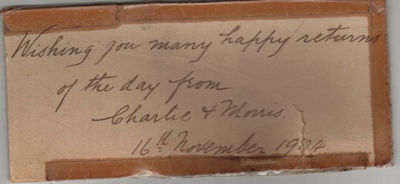 Wishing you many happy returns
of the day from
Charlie & Morris.
16th November 1924.